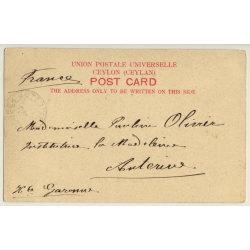 UNION POSTALE UNIVERSELLE
CEYLON (CEYLAN)
POST CARD
THE ADDRESS ONLY TO BE WRITTEN ON THIS SIDE
France
Mademoiselle Pauline Olivier
Institutrice la Madeleine
Auterive
Hte Garonne